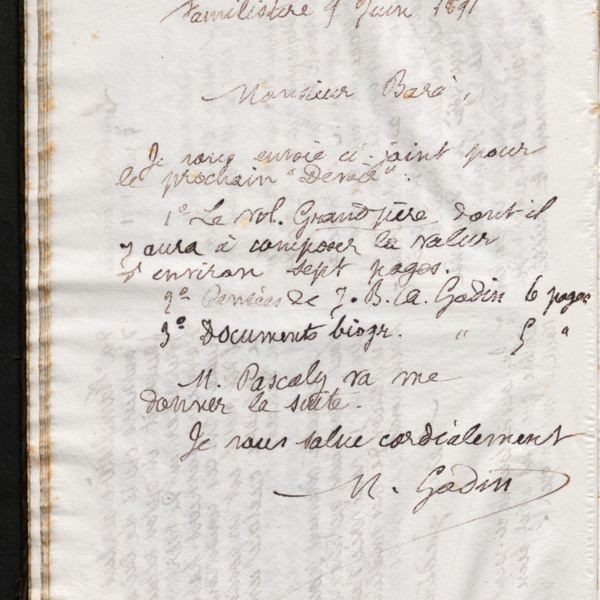 Familistère 9 Juin 1891
Monsieur Baré,
Je vous envoie ci-joint pour
le prochain "Devoir" :
1º Le vol. Grand-père dont il
y aura à composer la valeur
d'environ sept pages.
2º Pensées de J. B. A. Godin 6 pages
3º Documents biogr. " 5 "
M. Pascaly va me
donner la suite.
Je vous salue cordialement
M. Godin